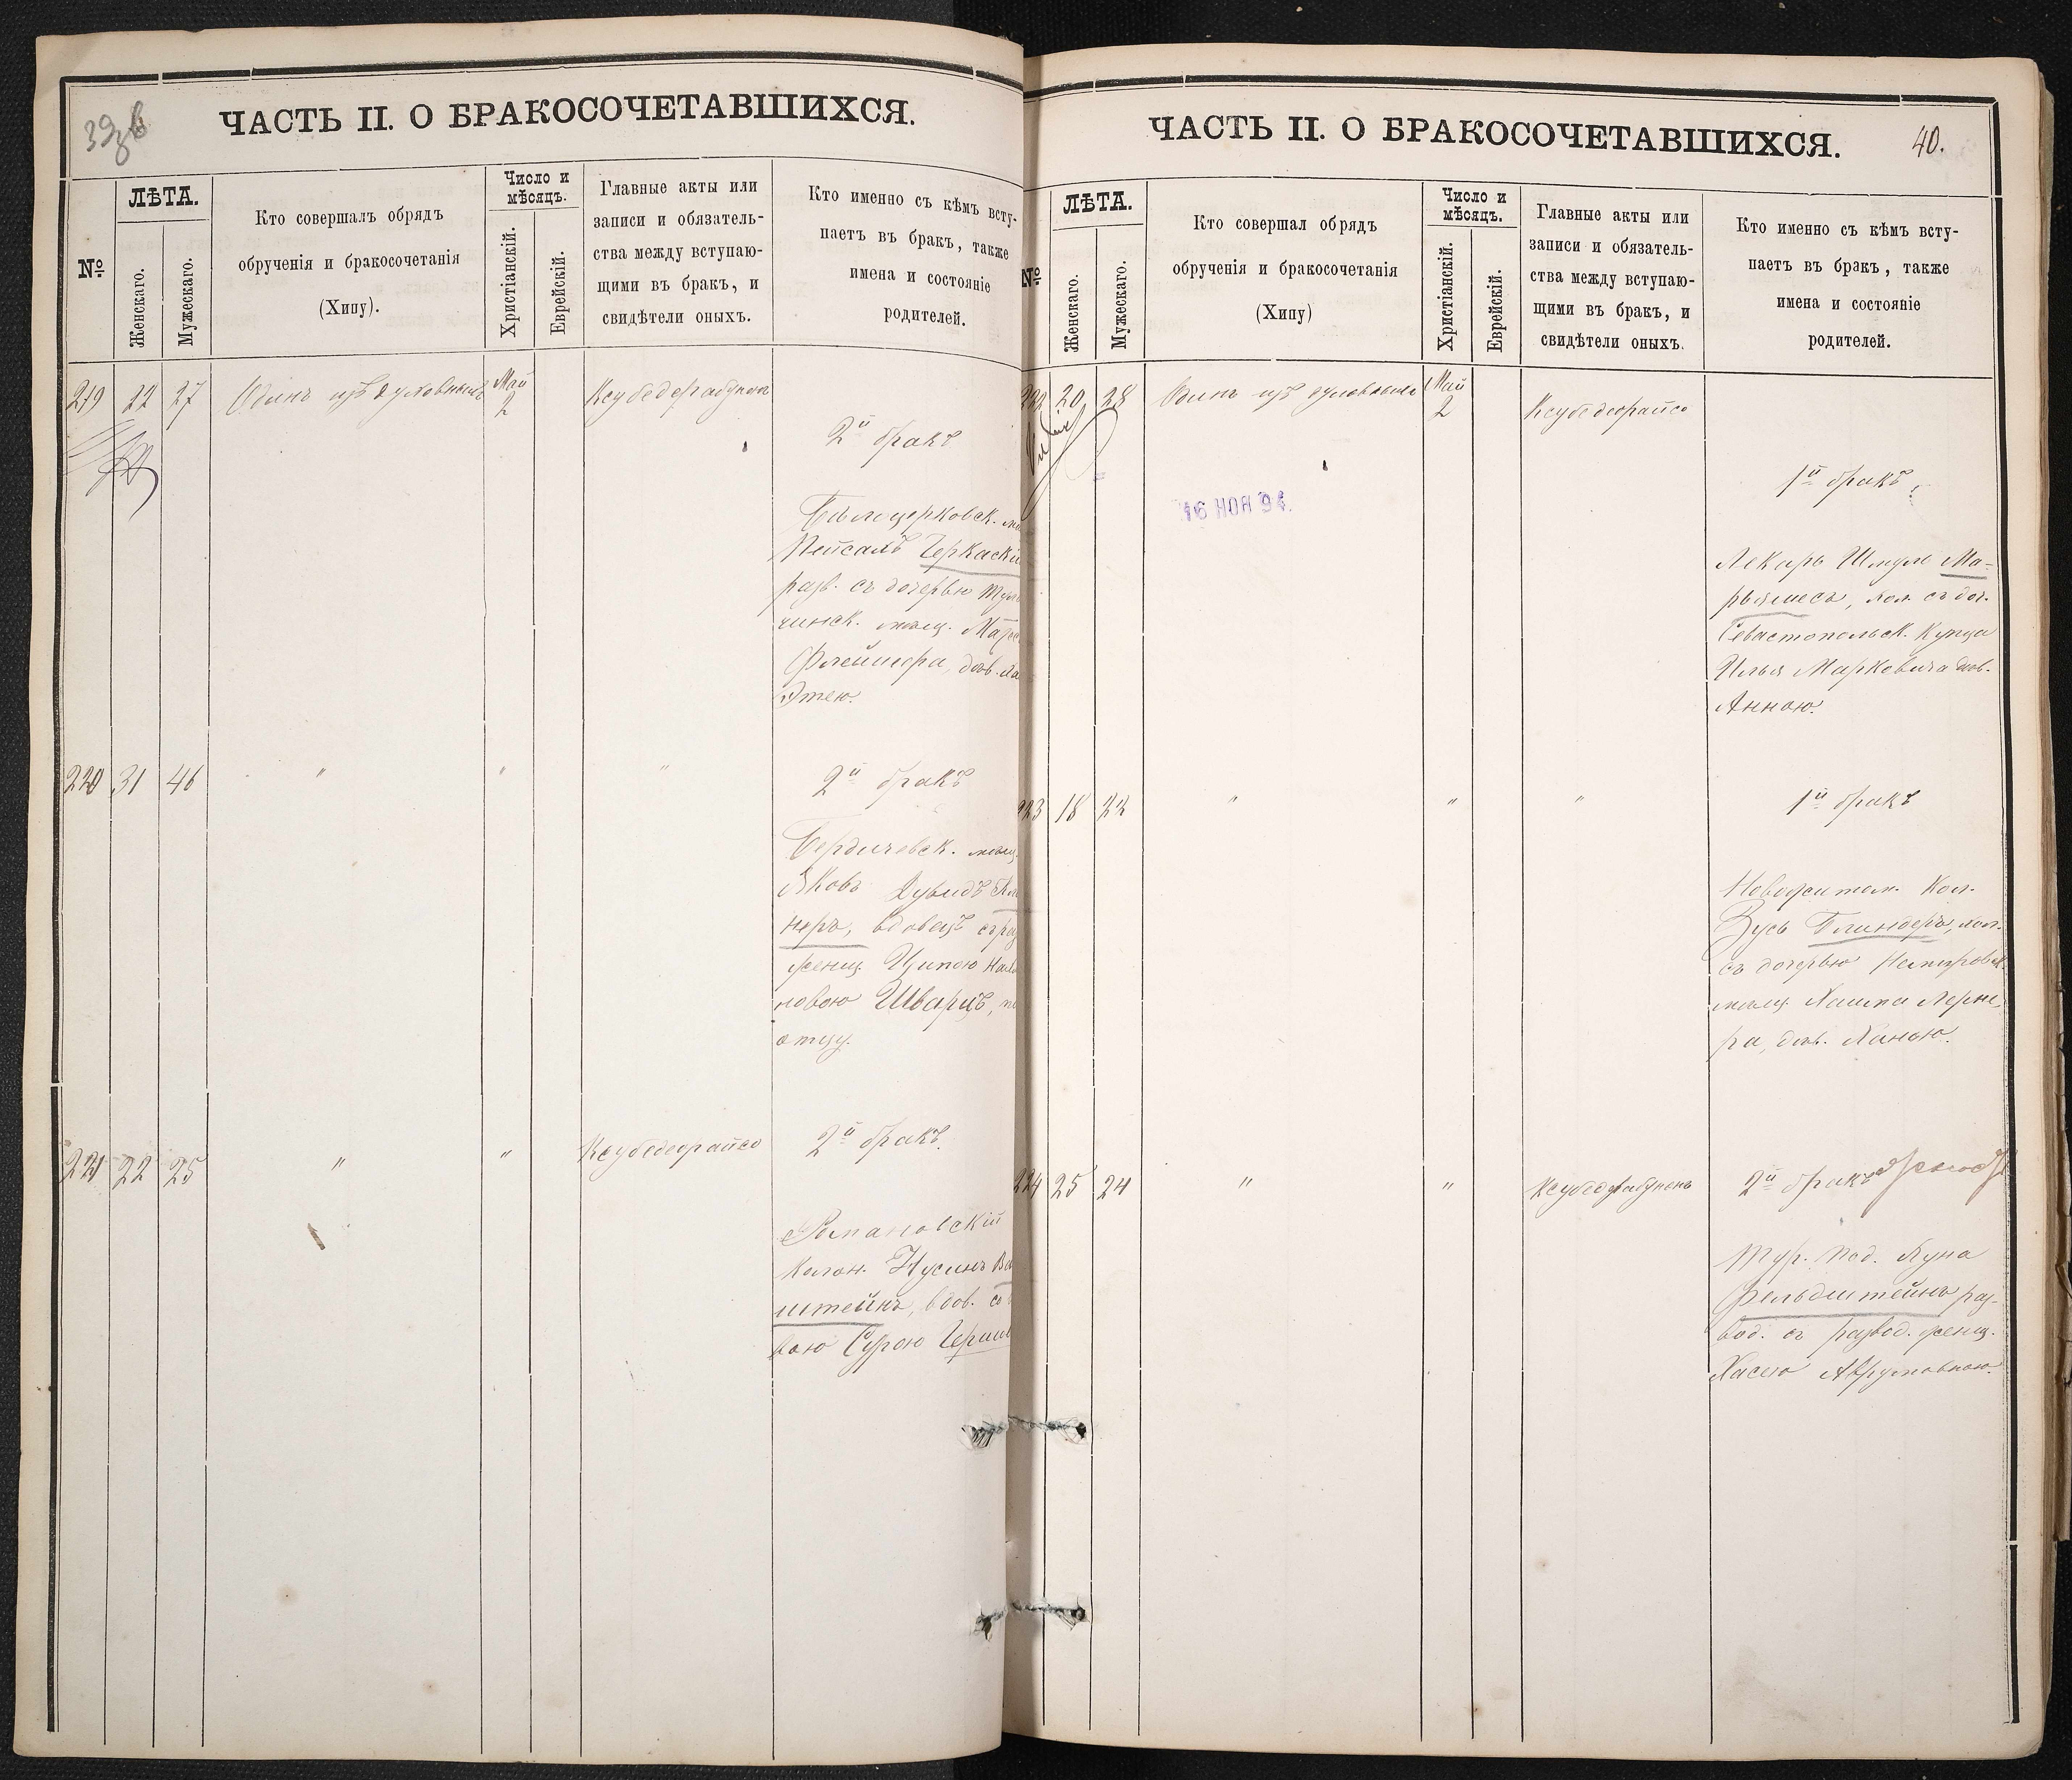 39об
ЧАСТЬ II. О БРАКОСОЧЕТАВШИХСЯ.
№
ЛѢТА.
Женскаго.
Мужескаго.
Кто совершалъ обрядъ
обрученія и бракосочетанія
(Хипу).
Число и
мѣсяцъ.
Христіанскій.
Еврейскій.
Главные акты или
записи и обязатель-
ства между вступаю-
щими въ бракъ, и
свидѣтели оныхъ.
Кто именно съ кѣмъ всту-
паетъ въ бракъ, также
имена и состояніе
родителей.
219 22 27 Одинъ изъ духовныхъ Май 2 Ксубедерабунон
2й бракъ
Бѣлоцерковск.
Пейсахъ Черкаскій
разв. съ дочерью Туль
чинск. мѣщ.
Флейшера, дѣв.
Этею.
220 31 46 " " " 2й бракъ
Бердичевск. мѣщ.
Яковъ Дувидъ
неръ, вдовецъ
женщ. Ципою
новою Шварцъ,
отцу.
221 22 25 " " Ксубедеорайсо 2й бракъ.
Романовскій
Колон. Нусинъ
штейнъ, вдов. съ
вою Сурою
ЧАСТЬ II. О БРАКОСОЧЕТАВШИХСЯ.
40.
№
ЛѢТА.
Женскаго.
Мужескаго.
Кто совершал обрядъ
обрученія и бракосочетанія
(Хипу)
Число и
мѣсяцъ.
Христіанскій.
Еврейскій.
Главные акты или
записи и обязатель-
ства между вступаю-
щими въ бракъ, и
свидѣтели оныхъ.
Кто именно съ кѣмъ всту-
паетъ въ бракъ, также
имена и состояніе
родителей.
222 20 28 Одинъ изъ духовныхъ Май 2 Ксубедеорайсо
1й бракъ.
16 НОЯ 94.
Лекарь Шмуль Ма-
рьямесъ, хол. съ доч.
Севастопольск. Купца
Илья Марковича дѣв.
Анною.
223 18 22 " " " 1й бракъ
Новожитом. Кол.
Зусь Блиндеръ, хол.
съ дочерью Немировск.
мѣщ. Хаима Лерне-
ра, дѣв. Ханою.
224 25 24 " " Ксубедерабунонъ 2й бракъ
Тур. под. Луна
Фельдштейнъ раз-
вод. съ развод. женщ.
Хасею Аврумовною.